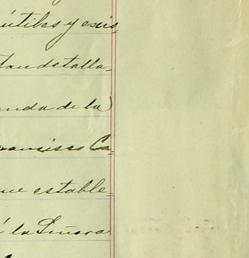 útiles y exis
tan detalla-
anda de la
rancisco Ca
que estable
á la Señora